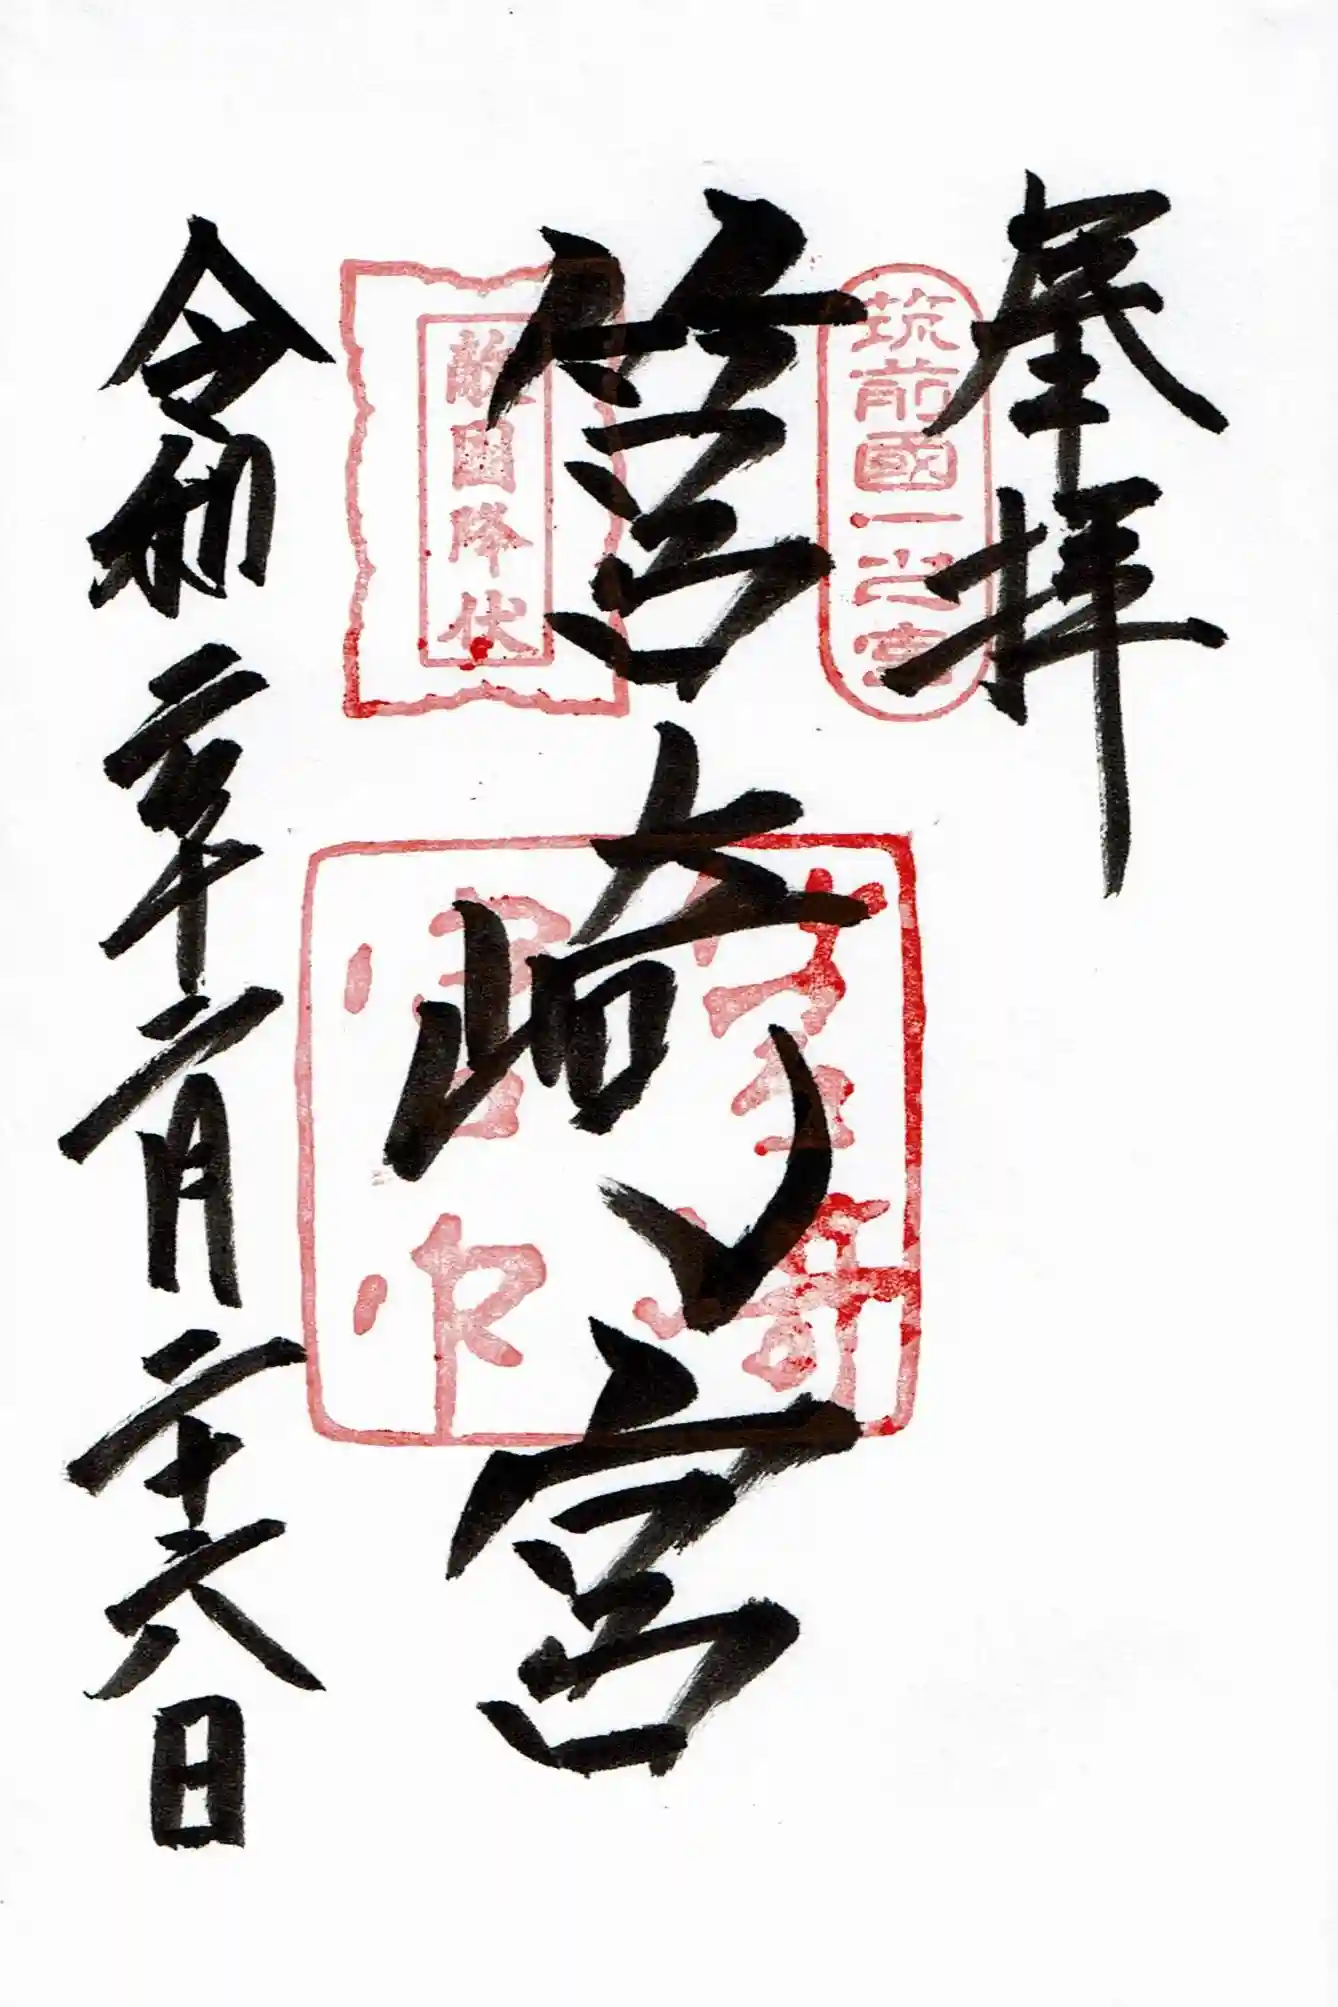 奉拝
筑前國一之宮
筥崎宮
敵國降伏
筥崎宮印
令和二年二月二十六日